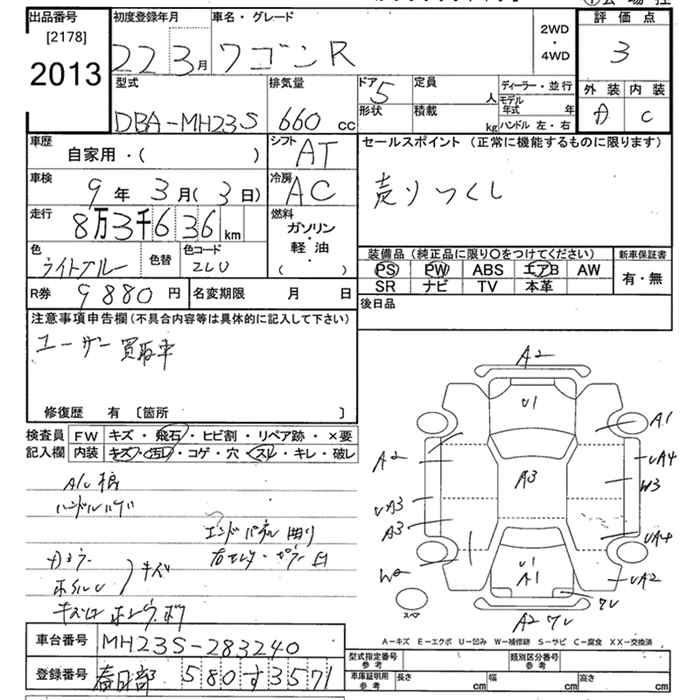 出品番号
[2178]
2013
初度登録年月
22 3月
車名・グレード
ワゴンR
2WD
・
4WD
評価点
3
外装 内装
A C
型式
DBA-MH23S
排気量
660 cc
ドア 5
形状
定員 人
積載 kg
ディーラー・並行
モデル年式 年
ハンドル 左・右
車歴
自家用・( )
シフト
AT
車検
9年 3月(3日)
冷房
AC
走行
8万3千636km
燃料
ガソリン
軽・油
( )
色
ライトブルー
色替
色コード
ZLU
R券 9880円
名変期限 月 日
セールスポイント (正常に機能するものに限ります)
売りつくし
装備品 (純正品に限り〇をつけてください)
新車保証書
PS PW ABS エアB AW
SR ナビ TV 本革
有・無
後日品
注意事項申告欄 (不具合内容等は具体的に記入して下さい)
ユーザー買取車
修復歴 有 〔箇所 〕
検査員記入欄
FW キズ・飛石・ヒビ割・リペア跡・×要
内装 キズ・汚レ・コゲ・穴・スレ・キレ・破レ
ハンドルハゲ
エンドパネル曲り
ホイルU
キズ
A2
U1
A1
A2
UA4
W3
A3
UA3
A3
UA4
U1
A1
UA2
スペア
A2
A-キズ E-エクボ U-凹み W-補修跡 S-サビ C-腐食 XX-交換済
車台番号 MH23S-283240
登録番号 春日部 580 す 3571
型式指定番号
参考
類別区分番号
参考
車庫証明用
参考
長さ cm
幅 cm
高さ cm